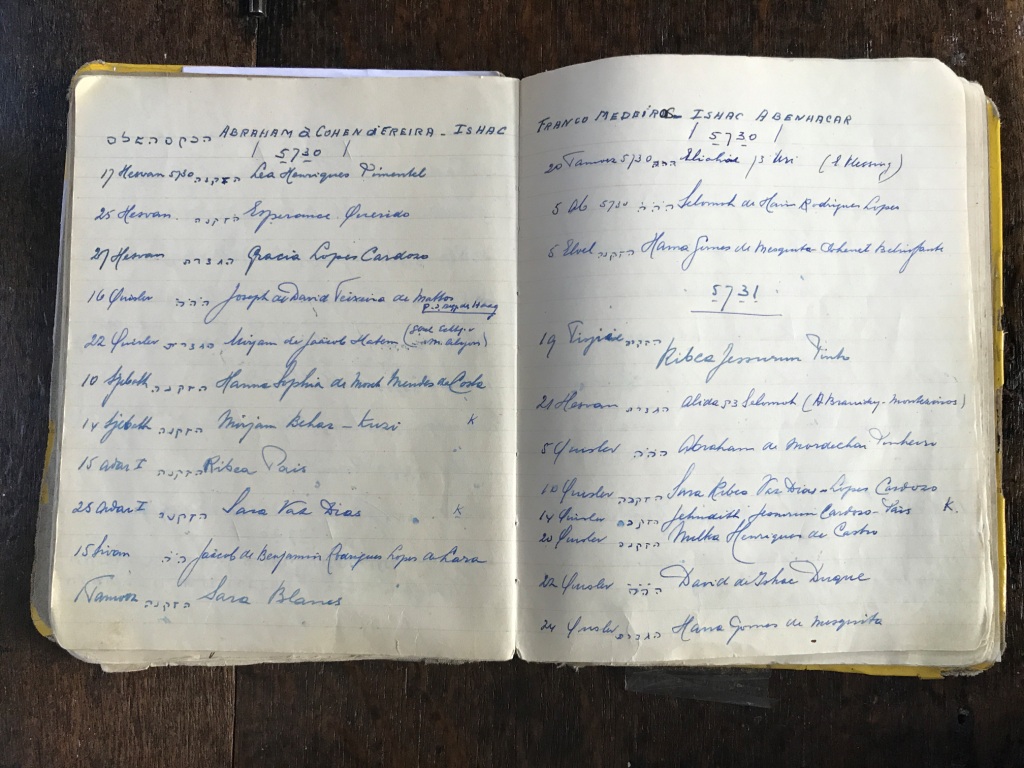 ABRAHAM COHEN PEREIRA - ISHAC
5730
17 Hesvan 5730 הזקנה Léa Henriques Pimentel
25 Hesvan. הזקנה Esperance Querido
27 Hesvan הגברת Gracia Lopes Cardozo
16 Quisler Joseph de David Teixeira de Mattos
22 Quisler הגברת Mirjam de Jaäcob Hatem
10 Sjebath הזקנה Hanna Sophia de Mord Mendes da Costa
14 Sjebath הזקנה Mirjam Behar - Kuzi K
15 Adar I הזקנה Ribca Pais
25 Adar I הזקנה Sara Vaz Dias K
15 Sivan Jaäcob de Benjamin Rodrigues Lopes de Lara
Tamooz הזקנה Sara Blanes
FRANCO MEDEIROS ISHAC ABENHACAR
5730
20 Tamooz 5730
5 Ab 5730 ה'ה'ה Selomoh de Haim Rodrigues Lopes
5 Elul הזקנה Hanna Gomes de Mesquita
5731
19 הזקנה
Ribca Jessurun Pinto
21 Hesvan הגברת Alida Selomoh
5 Quisler ה'ה'ה Abraham de Mordechai Pinheiro
10 Quisler הזקנה Sara Ribca Vaz Dias - Lopes Cardozo
14 Quisler הזקנה Jehudith Jessurun Cardozo - Pais K.
20 Quisler הזקנה Milka Henriques de Castro
22 Quisler ה'ה'ה David de Ishac Duque
24 Quisler הגברת Hanna Gomes de Mesquita